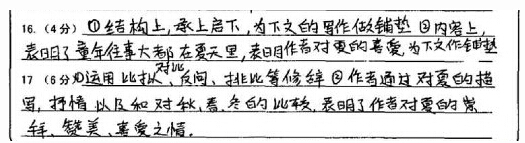 16.（4分）①结构上，承上启下，为下文的写作做铺垫 ②内容上，
表明了童年往事大都在夏天里，表明作者对夏的喜爱，为下文作铺垫
对比
17（6分）①运用比拟、反问、排比等修辞 ②作者通过对夏的描
写，抒情以及和对秋、春、冬的比较，表明了作者对夏的崇
拜、赞美、喜爱之情。